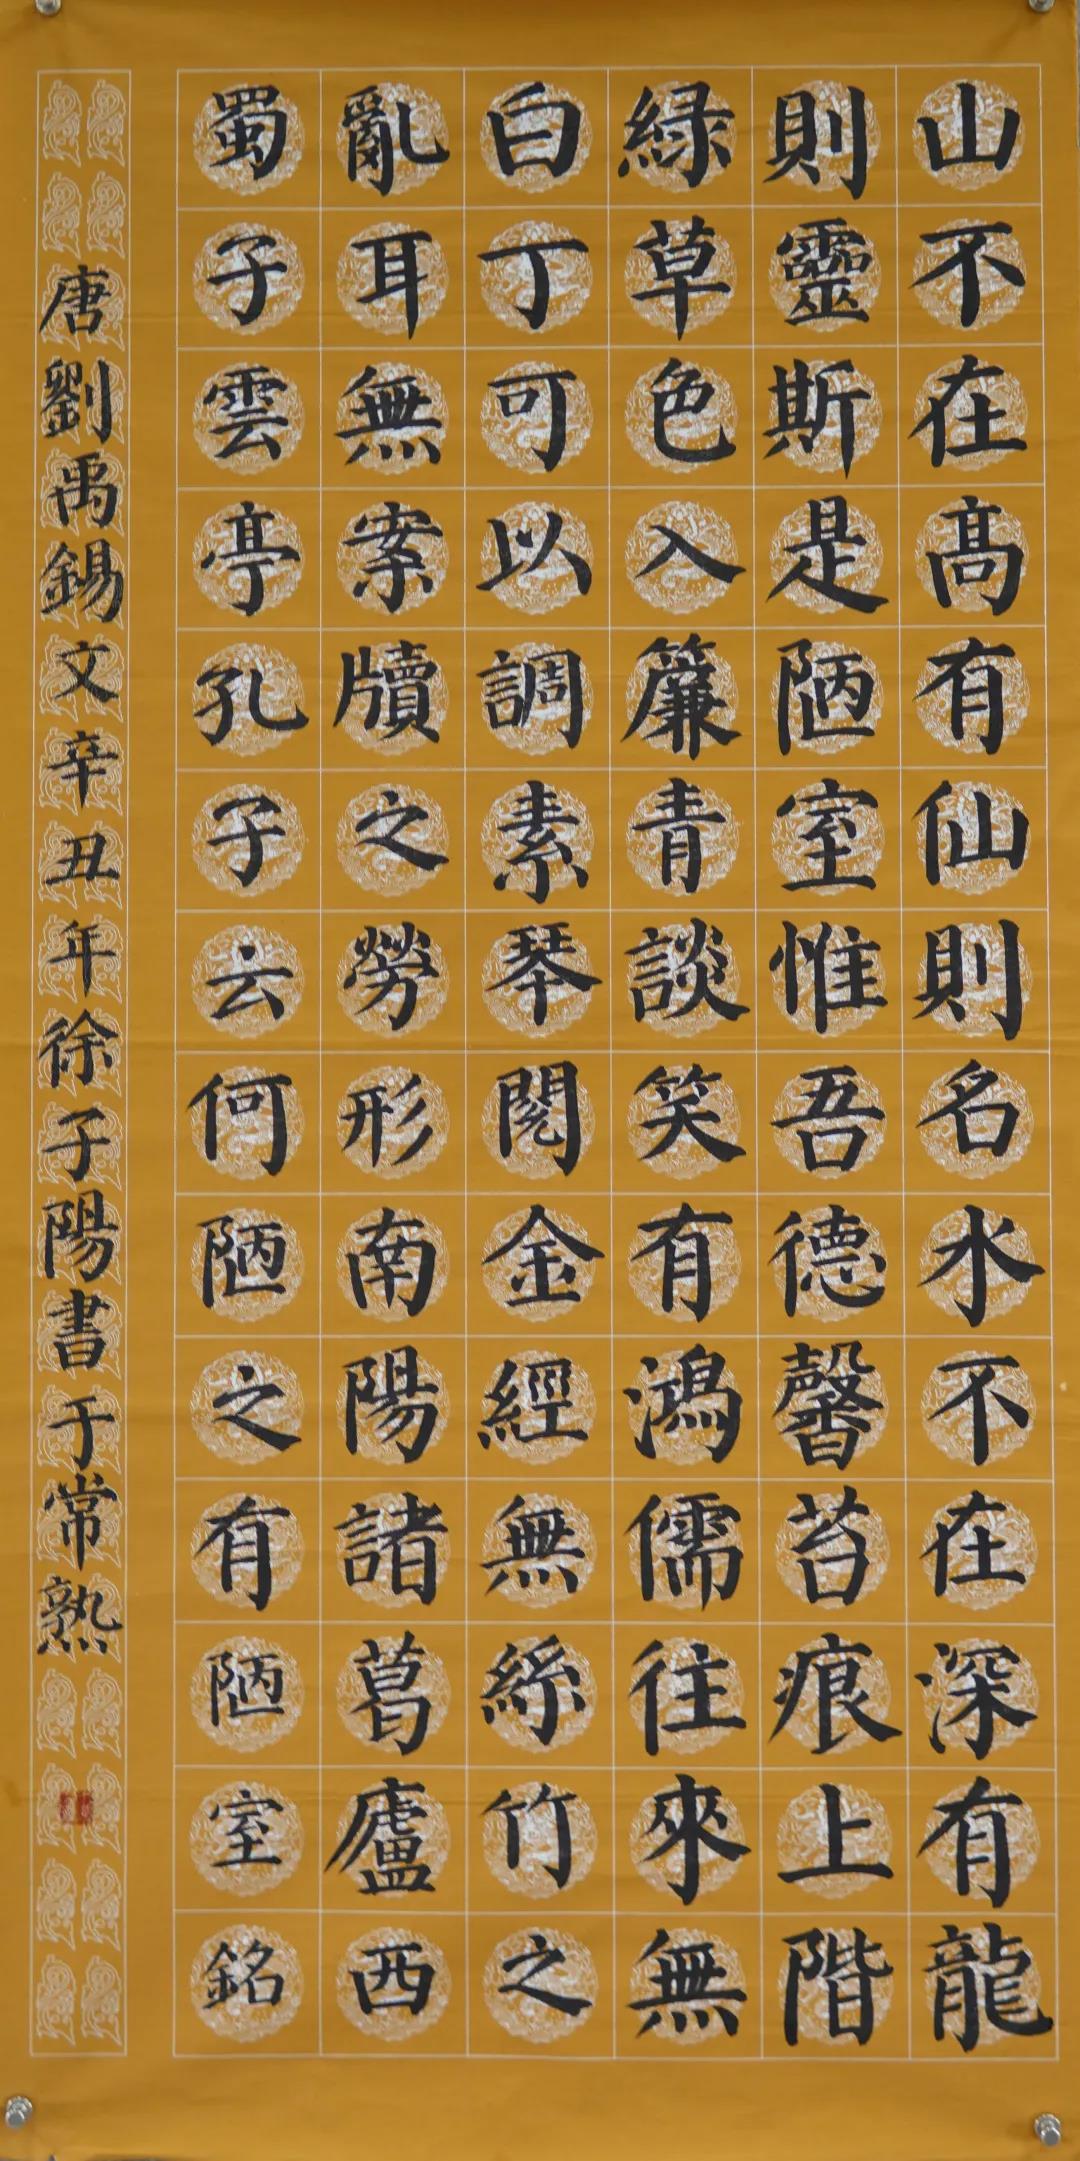 山不在高有仙則名水不在深有龍
則靈斯是陋室惟吾德馨苔痕上階
緑草色入簾青談笑有鴻儒往來無
白丁可以調素琴閱金經無絲竹之
亂耳無案牘之勞形南陽諸葛廬西
蜀子雲亭孔子云何陋之有陋室銘
唐劉禹錫文辛丑年徐子陽書于常熟